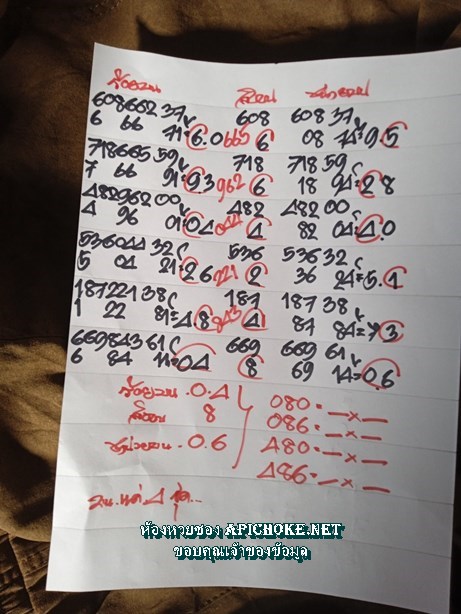 ร้อยบน สิบบน หน่วยบน
608662 37 608 608 37
6 66 71=6.0 665 6 08 74=9.5
718665 59 718 718 59
7 66 91=9.3 962 6 18 94=28
482962 00 482 482 00
4 96 01=04 044 4 82 04=4.0
536044 32 536 536 32
5 04 21=26 221 2 36 24=5.1
187221 38 187 187 38
1 22 81=4.8 843 4 87 84=7 3
669843 61 669 669 61
6 84 11=04 8 69 14=0.6
ร้อยบน . 0.4 080=—x—
สิบบน 8 086=—x—
หน่วยบน . 0.6 480=—x—
486=—x—
4 ชุด...
ห้องหวยซอง APICHOKE.NET
ขอบคุณเจ้าของข้อมูล